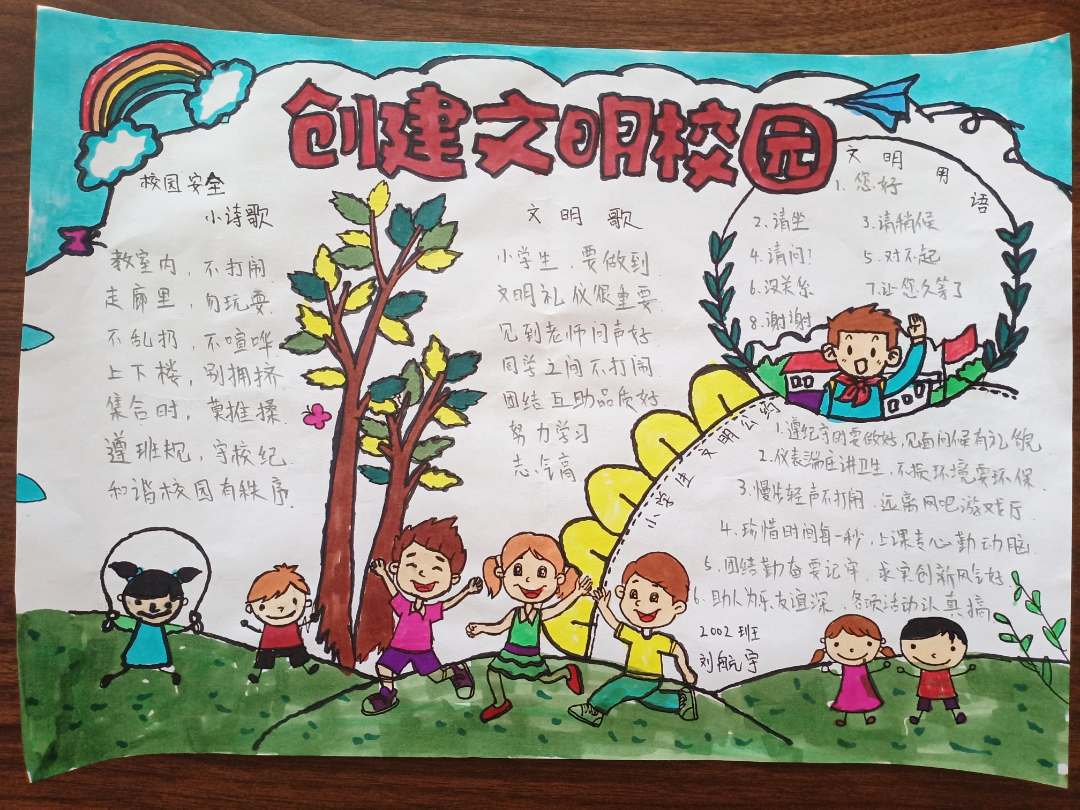 创建文明校园
校园安全
小诗歌
教室内，不打闹
走廊里，勿玩耍
不乱扔，不喧哗
上下楼，别拥挤
集合时，莫推搡
遵班规，守校纪
和谐校园有秩序
文明歌
小学生，要做到
文明礼仪很重要
见到老师问声好
同学之间不打闹
团结互助品质好
努力学习
志气高
文明用语
1.您好
2.请坐 3.请稍候
4.请问! 5.对不起
6.没关系 7.让您久等了
8.谢谢
小学生文明公约
1.遵纪守时要做好,见面问候有礼貌
2.仪表端庄讲卫生,不损环境要环保
3.慢步轻声不打闹,远离网吧游戏厅
4.珍惜时间每一秒,上课专心勤动脑
5.团结勤奋要记牢,求实创新风气好
6.助人为乐友谊深,各项活动认真搞
2002班
刘航宇